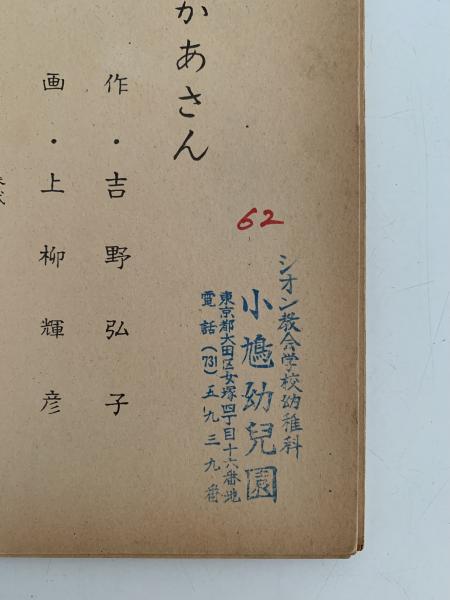 かあさん
作・吉野弘子
画・上柳輝彦
62
シオン教会学校幼稚科
小鳩幼兒園
東京都大田区女塚四丁目十六番地
電話(731)五九三九番